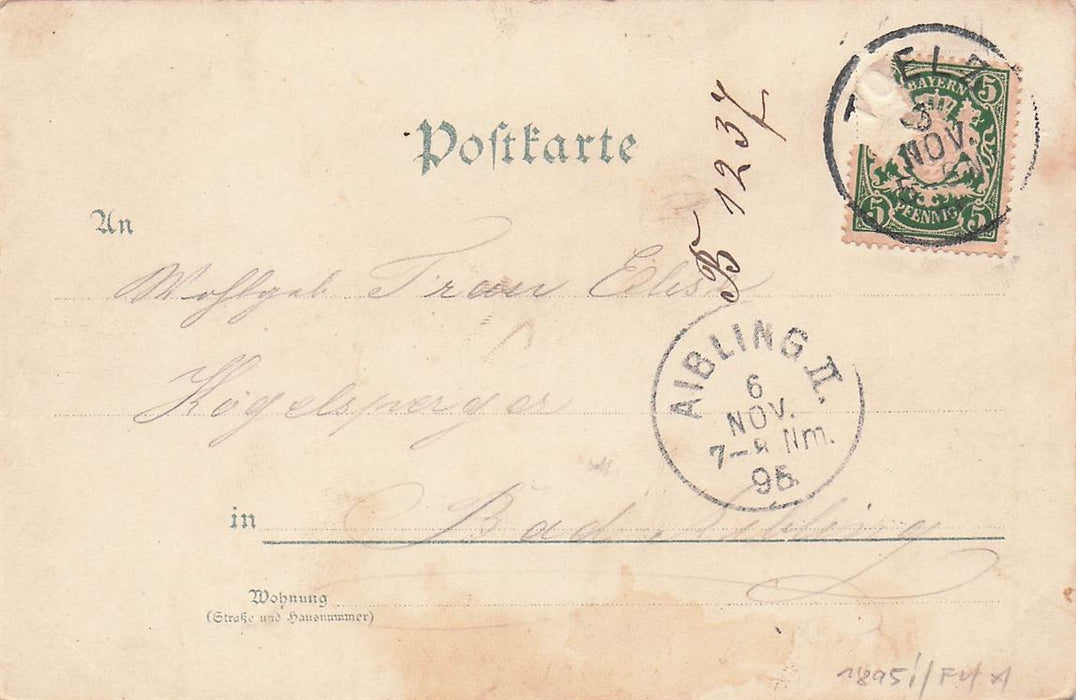 TOELZ
NOV.
BAYERN
5
5 PFENNIG 5
Postkarte
B 1237
An
Wohlgeb Frau Elise
Kögelsperger
AIBLING II.
6
NOV.
7-8 Nm.
95
in Bad Aibling
Wohnung
(Straße und Hausnummer)
1895